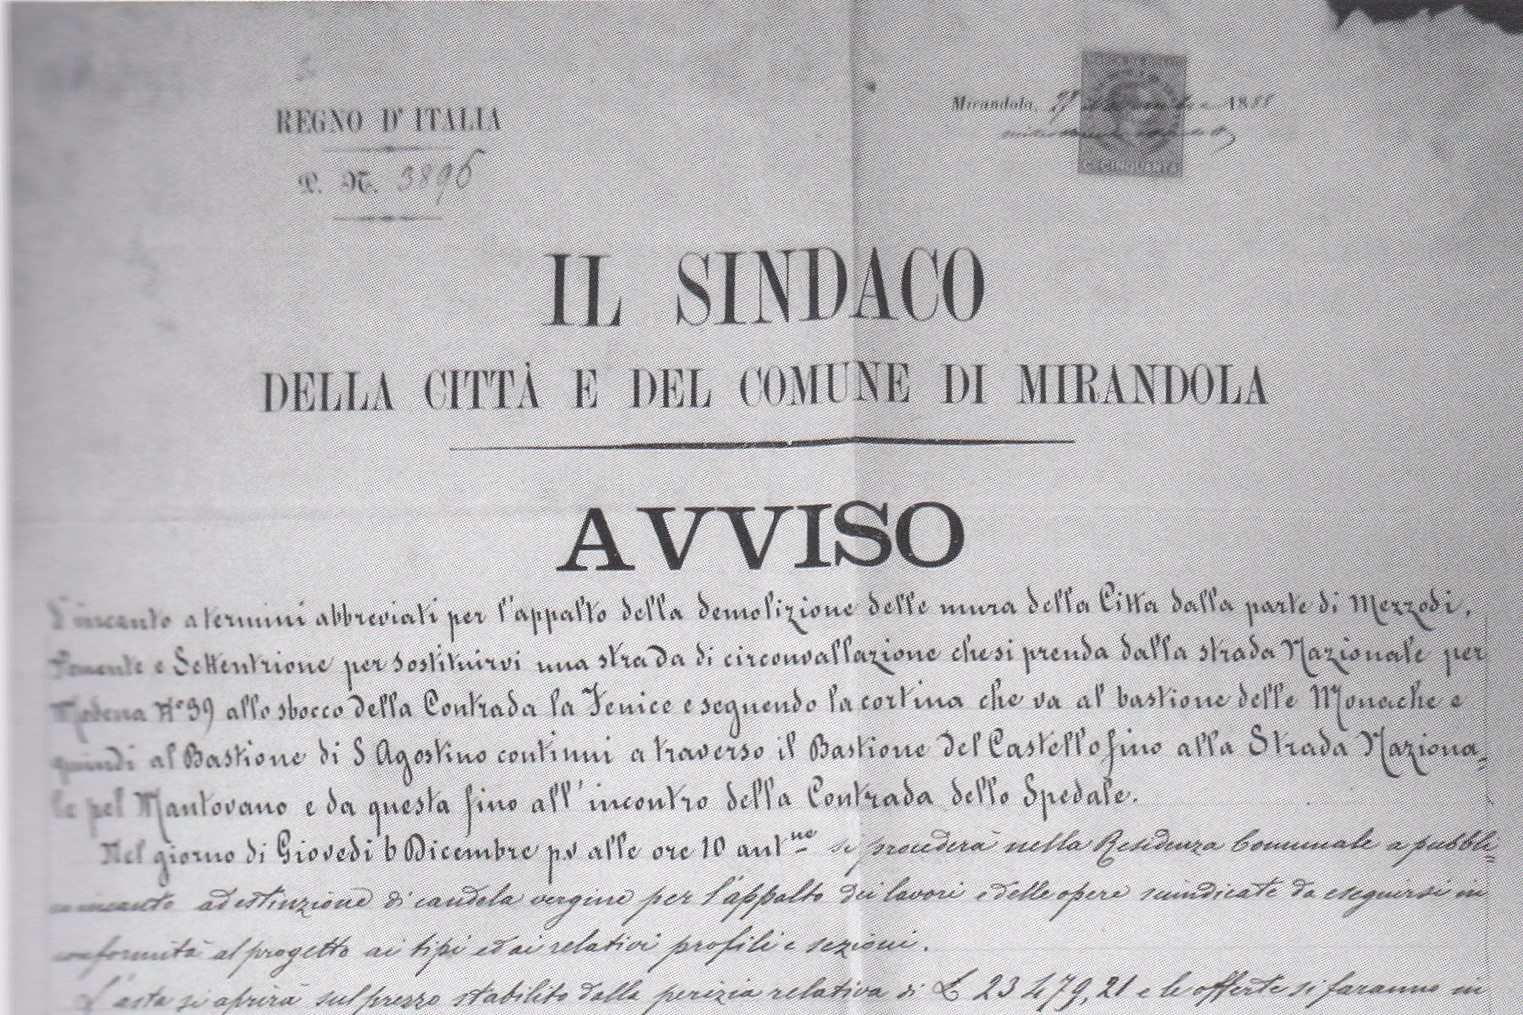 REGNO D'ITALIA
P. N. 3896
Mirandola, 1888
CECINQUANTA
IL SINDACO
DELLA CITTÀ E DEL COMUNE DI MIRANDOLA
AVVISO
d'incanto a termini abbreviati per l'appalto della demolizione delle mura della Citta dalla parte di Mezzodi,
Ponente e Settentrione per sostituirvi una strada di circonvallazione che si prenda dalla strada Nazionale per
Modena N° 39 allo sbocco della Contrada la Fenice e seguendo la cortina che va al bastione delle Monache e
quindi al Bastione di S Agostino continui a traverso il Bastione del Castello fino alla Strada Naziona=
le pel Mantovano e da questa fino all'incontro della Contrada dello Spedale.
Nel giorno di Giovedi 6 Dicembre p.v alle ore 10 antne si procederà nella Residenza Comunale a pubbli=
co incanto ad estinzione di candela vergine per l'appalto dei lavori e delle opere suindicate da eseguirsi in
conformità al progetto ai tipi ed ai relativi profili e sezioni.
L'asta si aprirà sul prezzo stabilito dalla perizia relativa di £ 23479,21 e le offerte si faranno in